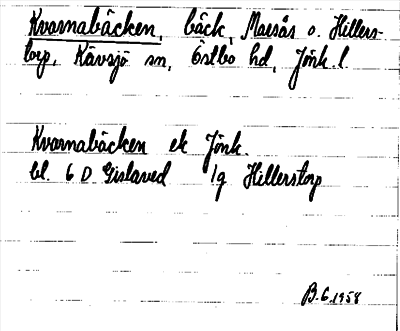 Kvarnabäcken, bäck, Marsås o. Hillers-
torp, Kävsjö sn, Östbo hd, Jönk. l
Kvarnabäcken ek Jönk.
bl. 6 D Gislaved 1g Hillerstorp
B.G. 1958